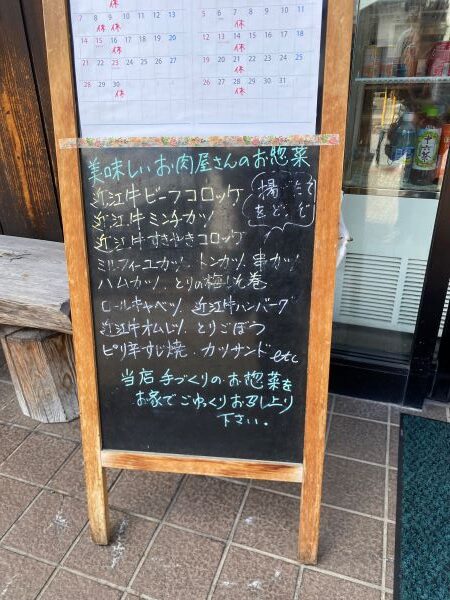 7 8 9 10 11 12 13
休 休
14 15 16 17 18 19 20
休
21 22 23 24 25 26 27
休
28 29 30
休
5 6 7 8 9 10 11
休
12 13 14 15 16 17 18
休
19 20 21 22 23 24 25
休
26 27 28 29 30 31
休
美味しいお肉屋さんのお惣菜
近江牛ビーフコロッケ
揚げたてをどうぞ
近江牛ミンチカツ
近江牛すきやきコロッケ
ミルフィーユカツ、トンカツ、串カツ
ハムカツ、とりの梅しそ巻
ロールキャベツ、近江牛ハンバーグ
近江牛オムレツ、とりごぼつ
ピリ辛すじ焼、カツサンドetc
当店手づくりのお惣菜を
お家でごゆっくりお召し上り
下さい。